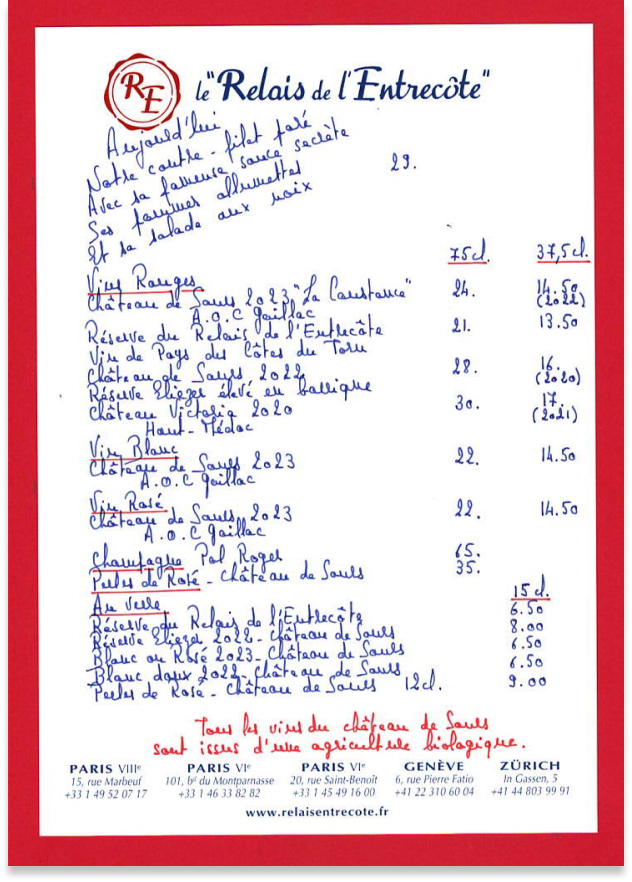 RE
le "Relais de l'Entrecôte"
Aujourd'hui
Notre contre-filet paré
Avec sa fameuse sauce secrète 29.
Ses pommes allumettes
Et sa salade aux noix
75cl. 37,5cl.
Vins Rouges
Château de Saurs 2023 "La Constance" 24. 14.50
A.O.C Gaillac (2022)
Réserve du Relais de l'Entrecôte 21. 13.50
Vin de Pays des Côtes du Tarn
Château de Saurs 2022 28. 16.
Réserve Eliezer élevé en barrique (2020)
Château Victoria 2020 30. 17.
Haut-Médoc (2021)
Vin Blanc
Château de Saurs 2023 22. 14.50
A.O.C Gaillac
Vin Rosé
Château de Saurs 2023 22. 14.50
A.O.C Gaillac
Champagne Pol Roger 65.
Perles de Rosé - Château de Saurs 35.
Au Verre 15cl.
Réserve du Relais de l'Entrecôte 6.50
Réserve Eliezer 2022 - Château de Saurs 8.00
Blanc ou Rosé 2023 - Château de Saurs 6.50
Blanc doux 2022 - Château de Saurs 6.50
Perles de Rosé - Château de Saurs 12cl. 9.00
Tous les vins du château de Saurs
sont issus d'une agriculture biologique.
PARIS VIIIe PARIS VIe PARIS VIe GENÈVE ZÜRICH
15, rue Marbeuf 101, bd du Montparnasse 20, rue Saint-Benoît 6, rue Pierre Fatio In Gassen, 5
+33 1 49 52 07 17 +33 1 46 33 82 82 +33 1 45 49 16 00 +41 22 310 60 04 +41 44 803 99 91
www.relaisentrecote.fr